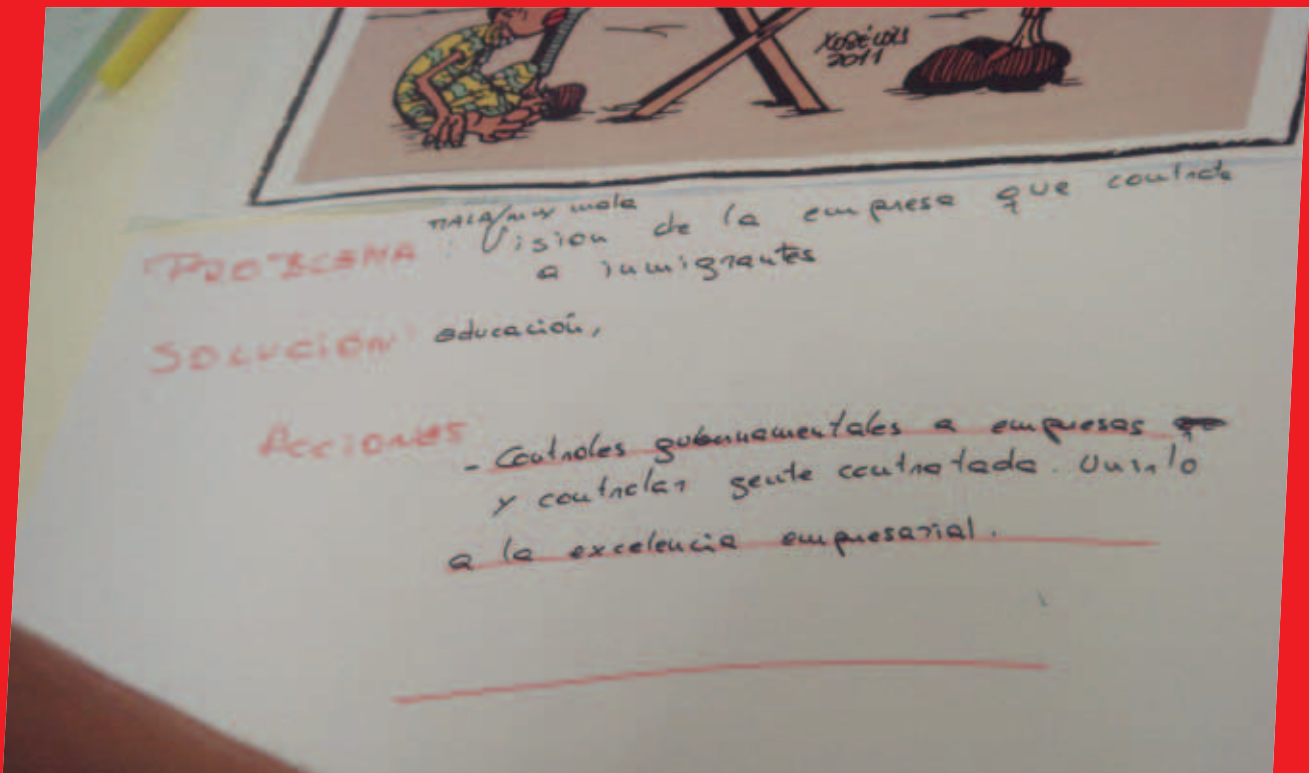 XOSÉ LOIS
2011
MALA/muy mala
PROBLEMA: Visión de la empresa que contrata
a inmigrantes
SOLUCIÓN: educación,
Acciones
- Controles gubernamentales a empresas
y controlar gente contratada. Unirlo
a la excelencia empresarial.